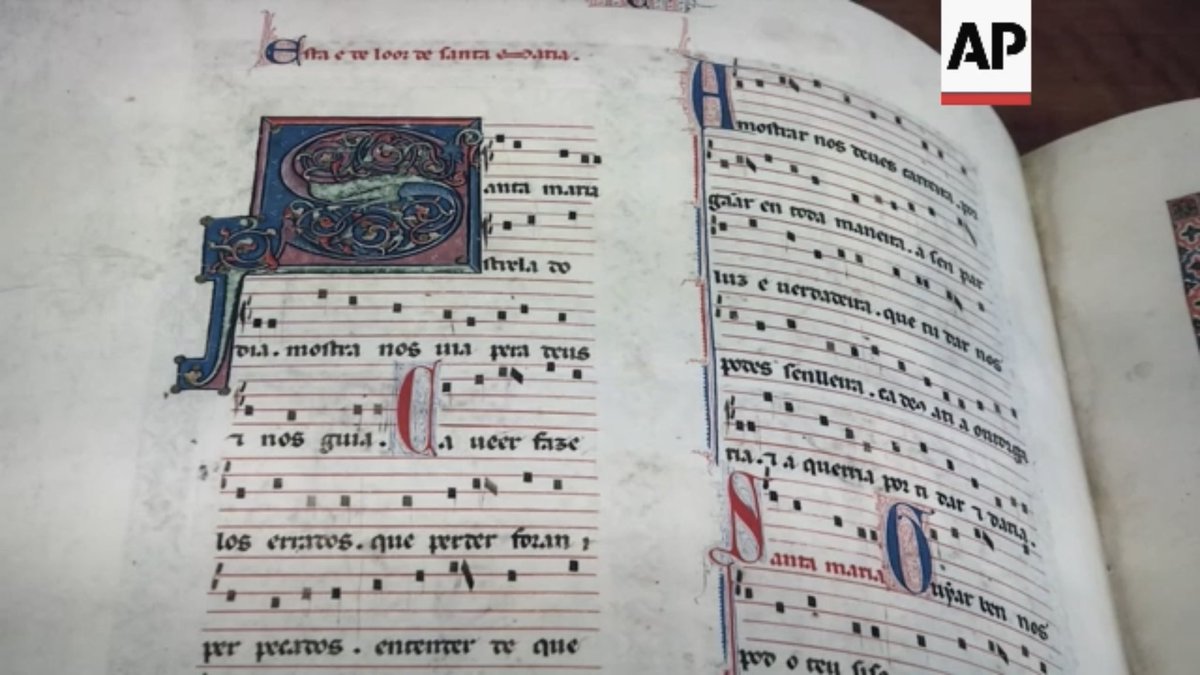 AP
Esta e de loor de santa maria.
Santa maria
strela do
dia. mostra nos uia pera deus
⁊ nos guia. Ca ueer faze
los errados. que perder foran
per pecados. entender de que
A
mostrar nos deues carreira. por
gãar en toda maneira. a sen par
luz e uerdadeira. que tu dar nos
podes senlleira. ca deus a ti a outorga
ria. ⁊ a querria por ti dar ⁊ daria.
Santa maria Guyar ben nos
pod o teu siso